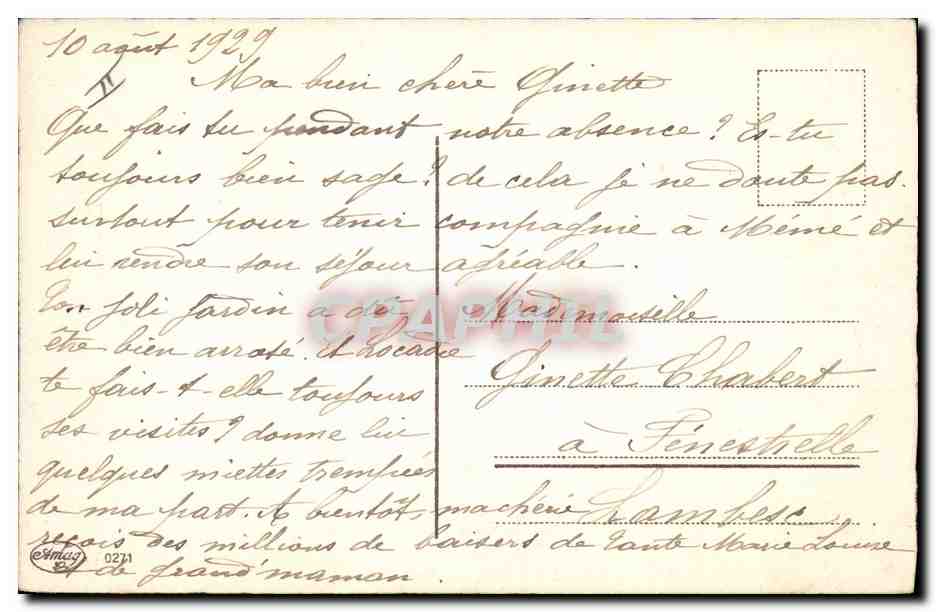 10 août 1929
II
Ma bien chère Ginette
Que fais tu pendant notre absence? Es-tu
toujours bien sage? de cela je ne doute pas.
surtout pour tenir compagnie à Mémé et
lui rendre son séjour agréable.
Ton joli jardin a dû
être bien arrosé. Et Locadie
te fais-t-elle toujours
ses visites? donne lui
quelques miettes trempées
de ma part. A bientôt, ma chérie
reçois des millions de baisers de Tante Marie Louise
et de grand'maman.
Mademoiselle
Ginette Chabert
à Fénestrelle
Lambesc
CPAPHIL
Amag
0271